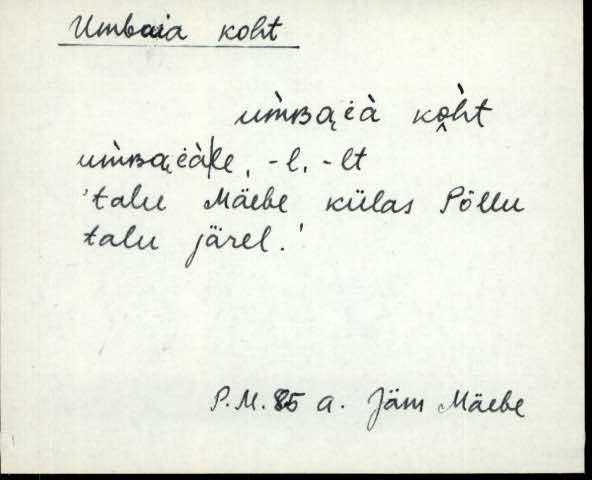 Umbaia koht
um̀ʙa̠i̭ɛ̀ὰ kò̭h̀t
um̀ʙa̠i̭ɛ̀ὰ|le, -l, -lt
'talu Mäebe külas Põllu
talu järel.'
P.M. 85 a. Jäm Mäebe